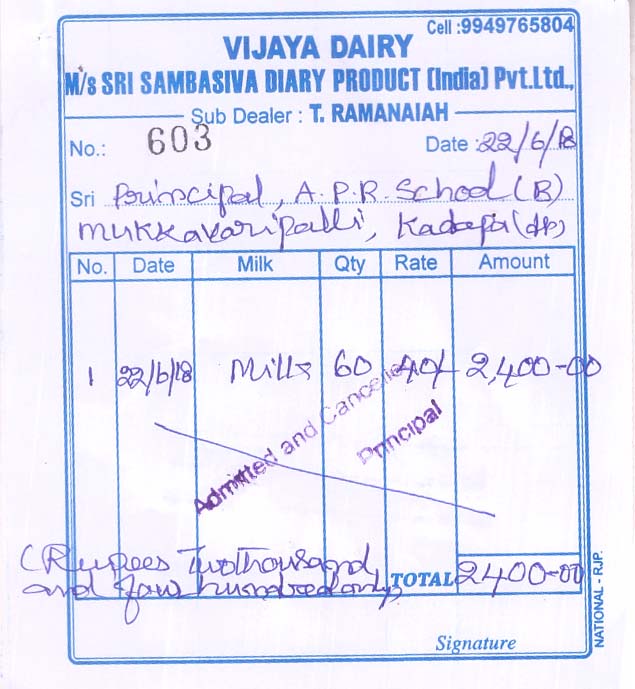 Cell :9949765804
VIJAYA DAIRY
M/s SRI SAMBASIVA DIARY PRODUCT (India) Pvt.Ltd.,
Sub Dealer : T. RAMANAIAH
No.: 603 Date : 22/6/18
Sri Principal, A.P.R. School (B)
Mukkavaripalli, Kadapa (dt)
No. Date Milk Qty Rate Amount
1 22/6/18 Milk 60 40/- 2,400-00
Admitted and Cancelled
Principal
(Rupees Two thousand
and four hundred only)
TOTAL 2400-00
Signature
NATIONAL - RJP.